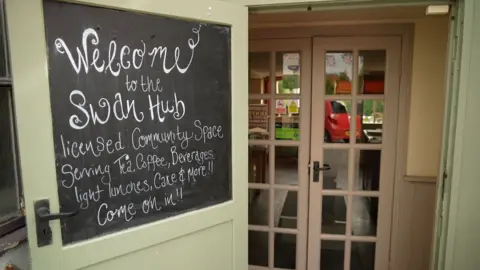 Welcome
to the
Swan Hub
licensed Community Space
Serving Tea, Coffee, Beverages
light lunches, Cake & More!!
Come on in!!